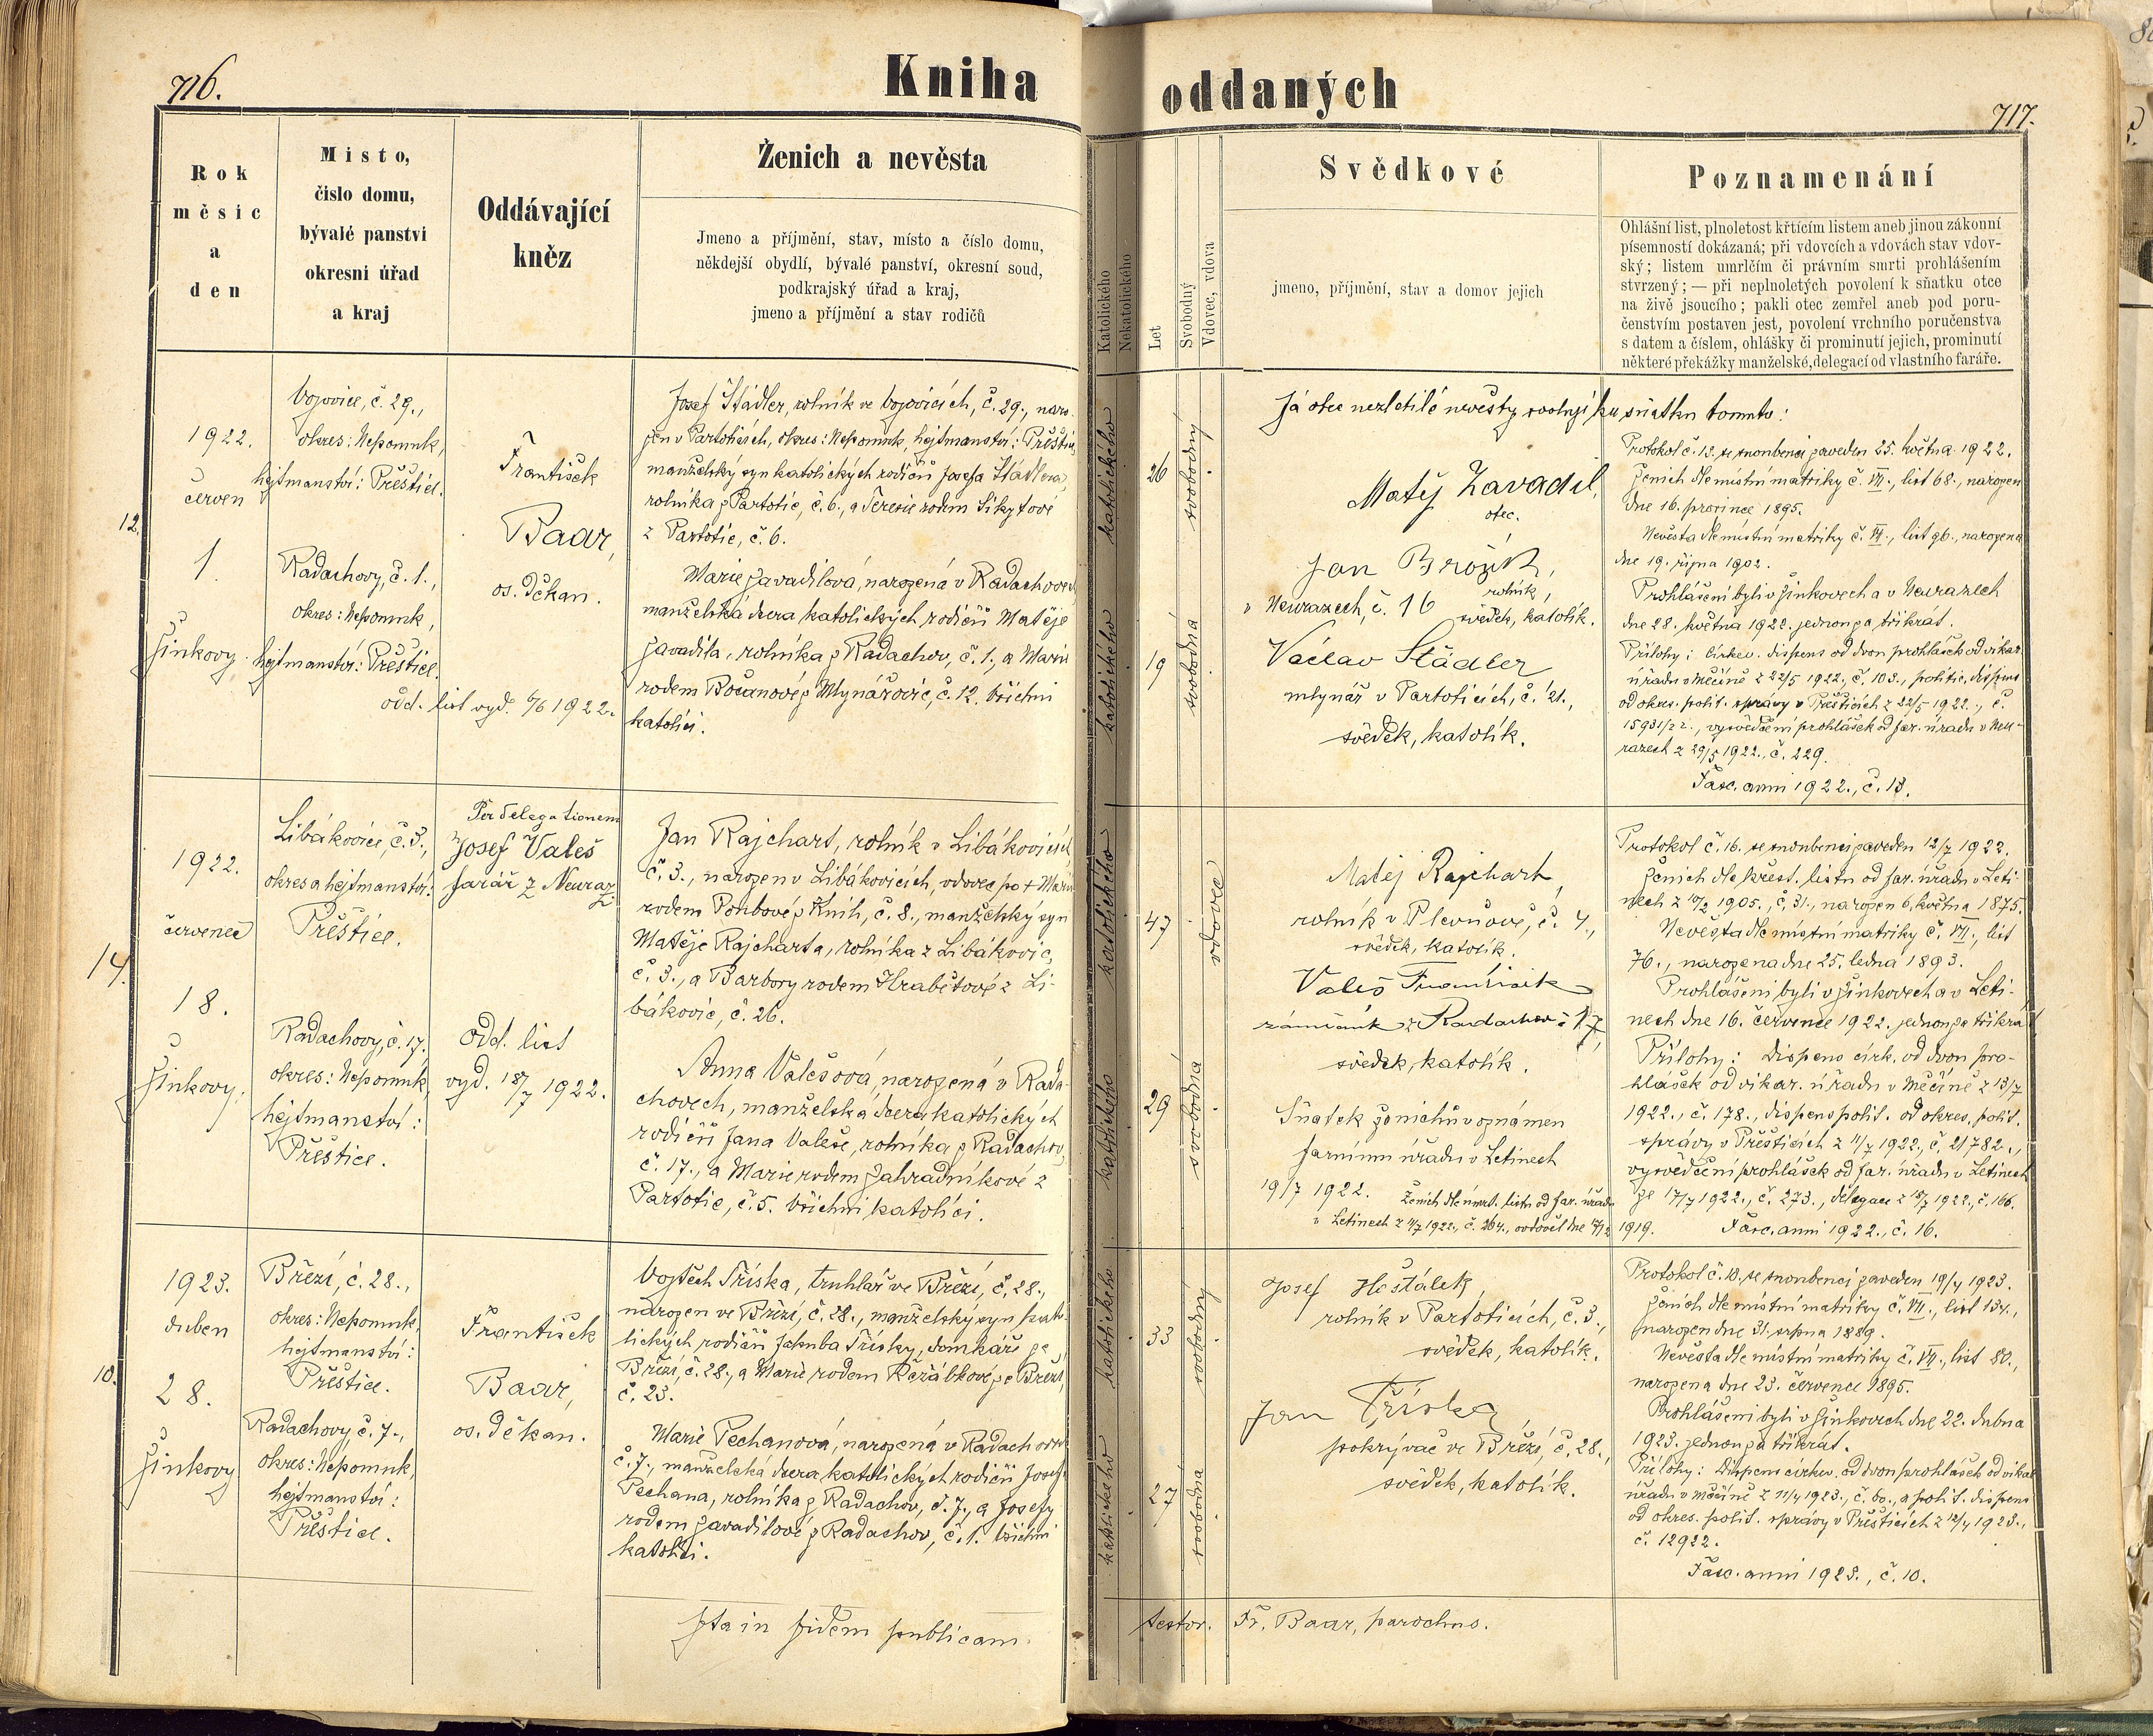 716.
Kniha
oddaných
717.
Rok
měsíc
a
den
Místo,
číslo domu,
bývalé panství
okresní úřad
a kraj
Oddávající
kněz
Ženich a nevěsta
Jmeno a příjmění, stav, místo a číslo domu,
někdejší obydlí, bývalé panství, okresní soud,
podkrajský úřad a kraj,
jmeno a příjmění a stav rodičů
Katolického
Nekatolického
Let
Svobodný
Vdovec, vdova
Svědkové
jmeno, příjmění, stav a domov jejich
Poznamenání
Ohlášní list, plnoletost křtícím listem aneb jinou zákonní
písemností dokázaná; při vdovcích a vdovách stav vdov-
ský; listem umrlčím či právním smrti prohlášením
stvrzený; — při neplnoletých povolení k sňatku otce
na živě jsoucího; pakli otec zemřel aneb pod poru-
čenstvím postaven jest, povolení vrchního poručenstva
s datem a číslem, ohlášky či prominutí jejich, prominutí
některé překážky manželské, delegací od vlastního faráře.
12.
1922.
červen
1.
Žinkovy.
Vojovice, č. 29.,
okres: Nepomuk,
hejtmanství: Přeštice.
Radachovy, č. 1.,
okres: Nepomuk,
hejtmanství: Přeštice.
odd. list vyd. 6/6 1922.
František
Baar,
os. děkan.
Josef Städler, rolník ve Vojovicích, č. 29., naro-
zen v Partoticích, okres: Nepomuk, hejtmanství: Přeštice,
manželský syn katolických rodičů Josefa Städlera,
rolníka z Partotic, č. 6., a Terezie rodem Sikytové
z Partotic, č. 6.
Marie Zavadilová, narozená v Radachovech,
manželská dcera katolických rodičů Matěje
Zavadila, rolníka z Radachov, č. 1., a Marie
rodem Bočanové z Mlynářovic, č. 12. Všichni
katolíci.
katolického
26
svobodný
katolického
19
svobodná
Já otec nezletilé nevěsty svoluji ku sňatku tomuto:
Matěj Zavadil,
otec.
Jan Brožík,
rolník,
v Neurazech, č. 16
svědek, katolík.
Václav Städler
mlynář v Partoticích, č. 21.,
svědek, katolík.
Protokol č. 13. se snoubenci zaveden 25. května 1922.
Ženich dle místní matriky č. VII., list 68., narozen
dne 16. prosince 1895.
Nevěsta dle místní matriky č. VI., list 96., narozena
dne 19. října 1902.
Prohlášeni byli v Žinkovech a v Neurazech
dne 28. května 1922. jednou za třikrát.
Přílohy: církev. dispens od dvou prohlášek od vikar.
úřadu v Měčíně z 22/5 1922., č. 103., politic. dispens
od okres. polit. správy v Přešticích z 22/5 1922., č.
15931/22., vysvědčení prohlášek od far. úřadu v Neu-
razech z 29/5 1922., č. 229.
Fasc. anni 1922., č. 13.
14.
1922.
červenec
18.
Žinkovy.
Libákovice, č. 3.,
okres a hejtmanství:
Přeštice.
Radachovy, č. 17.,
okres: Nepomuk,
hejtmanství:
Přeštice.
Per delegationem
Josef Valeš
farář z Neuraz
odd. list
vyd. 18/7 1922.
Jan Rajchart, rolník v Libákovicích,
č. 3., narozen v Libákovicích, vdovec po + Marii
rodem Poubové z Knih, č. 8., manželský syn
Matěje Rajcharta, rolníka z Libákovic,
č. 3., a Barbory rodem Hrabětové z Li-
bákovic, č. 26.
Anna Valešová, narozená v Rada-
chovech, manželská dcera katolických
rodičů Jana Valeše, rolníka z Radachov,
č. 17., a Marie rodem Zahradníkové z
Partotic, č. 5. Všichni katolíci.
katolického
47
vdovec
katolického
29
svobodná
Matěj Rajchart,
rolník v Plevňově, č. 4.,
svědek, katolík.
Valeš František
z Radachov č 17,
svědek, katolík.
Sňatek ženichův oznámen
farnímu úřadu v Letinech
19/7 1922. Ženich dle úmrt. listu od far. úřadu
v Letinech z 11/7 1922., č. 264., ovdověl dne 12/12 1919.
Protokol č. 16. se snoubenci zaveden 12/7 1922.
Ženich dle křest. listu od far. úřadu v Leti-
nech z 10/2 1905., č. 31., narozen 6. května 1875.
Nevěsta dle místní matriky č. VII., list
76., narozena dne 25. ledna 1893.
Prohlášeni byli v Žinkovech a v Leti-
nech dne 16. července 1922. jednou za třikrát
Přílohy: Dispens církv. od dvou pro-
hlášek od vikar. úřadu v Měčíně z 13/7
1922., č. 178., dispens polit. od okres. polit.
správy v Přešticích z 11/7 1922., č. 21782.,
vysvědčení prohlášek od far. úřadu v Letinech
ze 17/7 1922., č. 273., delegace z 18/7 1922., č. 166.
Fasc. anni 1922., č. 16.
10.
1923.
duben
28.
Žinkovy
Březí, č. 28.,
okres: Nepomuk,
hejtmanství:
Přeštice.
Radachovy, č. 7.,
okres: Nepomuk,
hejtmanství:
Přeštice.
František
Baar,
os. děkan.
Vojtěch Tříska, truhlář ve Březí, č. 28.,
narozen ve Březí, č. 28., manželský syn kato-
lických rodičů Jakuba Třísky, domkáře ze
Březí, č. 28., a Marie rodem Řeřábkové ze Březí,
č. 23.
Marie Pechanová, narozená v Radachovech
č. 7., manželská dcera katolických rodičů Josefa
Pechana, rolníka z Radachov, č. 7., a Josefy
rodem Zavadilové z Radachov, č. 1. Všichni
katolíci.
katolického
33
svobodný
katolického
27
svobodná
Josef Hošťálek,
rolník v Partoticích, č. 3.,
svědek, katolík.
Jan Tříska
pokrývač ve Březí, č. 28.,
svědek, katolík.
Protokol č. 10. se snoubenci zaveden 19/4 1923.
Ženich dle místní matriky č. VII., list 134.,
narozen dne 31. srpna 1889.
Nevěsta dle místní matriky č. VII., list 80.,
narozena dne 23. července 1895.
Prohlášeni byli v Žinkovech dne 22. dubna
1923. jednou za třikrát.
Přílohy: Dispens církev. od dvou prohlášek od vikar.
úřadu v Měčíně z 11/4 1923., č. 60., a polit. dispens
od okres. polit. správy v Přešticích z 12/4 1923.,
č. 12922.
Fasc. anni 1923., č. 10.
Ita in fidem publicam testor. Fr. Baar, parochus.